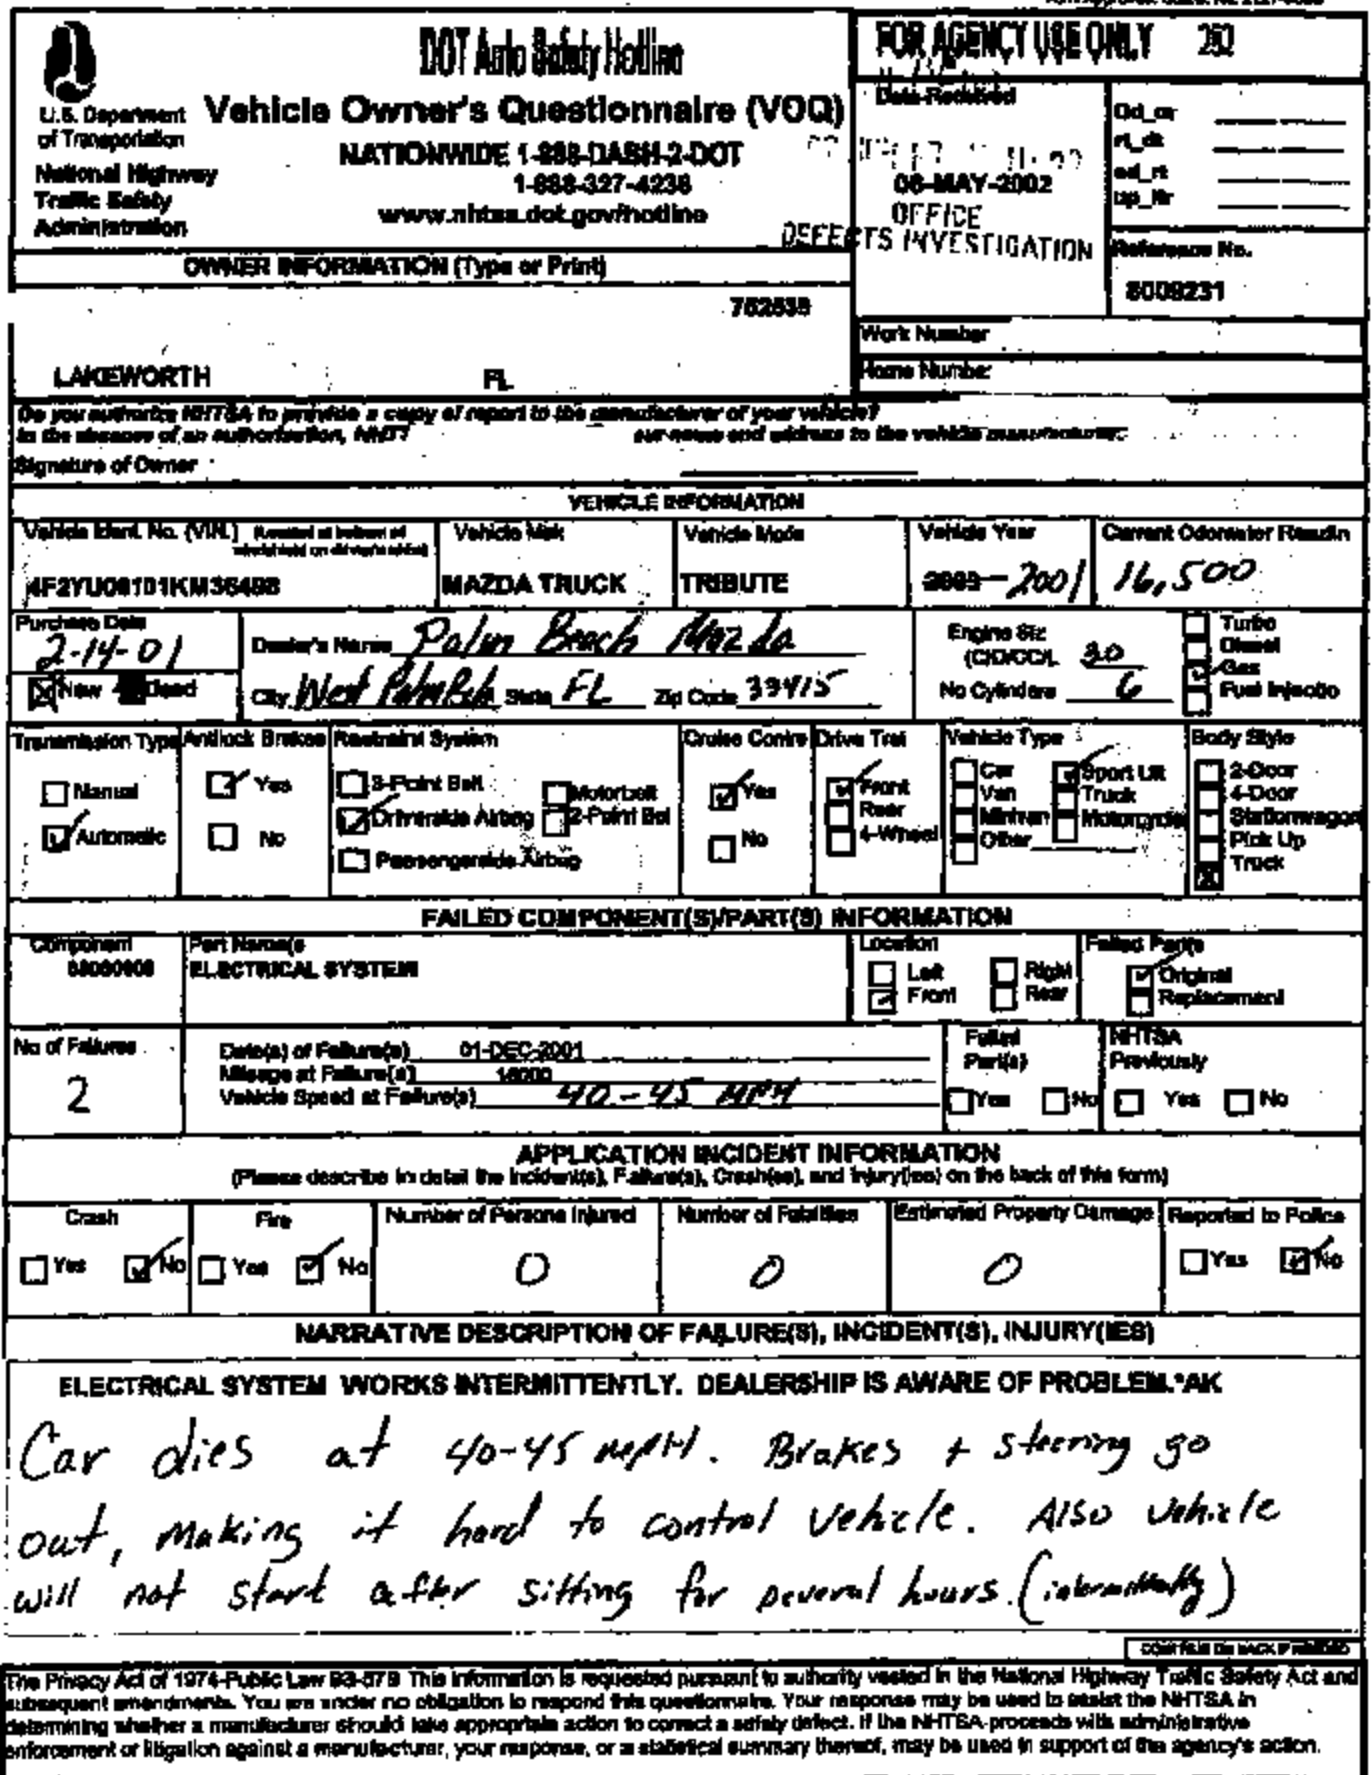 DOT Auto Safety Hotline
Vehicle Owner's Questionnaire (VOQ)
NATIONWIDE 1-888-DASH-2-DOT
1-888-327-4236
www.nhtsa.dot.gov/hotline
U.S. Department
of Transportation
National Highway
Traffic Safety
Administration
FOR AGENCY USE ONLY
Date Received
06-MAY-2002
OFFICE
DEFECTS INVESTIGATION
Od_or
rt_dt
od_rt
up_ltr
Reference No.
8009231
OWNER INFORMATION (Type or Print)
LAKEWORTH FL
Work Number
Home Number
Do you authorize NHTSA to provide a copy of report to the manufacturer of your vehicle?
In the absence of an authorization, name and address to the vehicle manufacturer.
Signature of Owner
VEHICLE INFORMATION
Vehicle Ident. No. (VIN.) Vehicle Mak Vehicle Mode Vehicle Year Current Odometer Readin
MAZDA TRUCK TRIBUTE 2001 16,500
Purchase Date
2-14-01
New
Dealer's Name Palm Beach Mazda
City West Palm Bch State FL Zip Code 33415
Engine Siz
(CID/CC/L 30
No Cylinders 6
Turbo
Diesel
Gas
Fuel Injectio
Transmission Type
Manual
Automatic
Antilock Brakes
Yes
No
Restraint System
3-Point Belt
Driverside Airbag
Passengerside Airbag
Motorbelt
2-Point Bel
Cruise Contro
Yes
No
Drive Trai
Front
Rear
4-Wheel
Vehicle Type
Car
Van
Minivan
Other
Sport Util
Truck
Motorcycle
Body Style
2-Door
4-Door
Stationwagon
Pick Up
Truck
FAILED COMPONENT(S)/PART(S) INFORMATION
Component
Part Name(s
ELECTRICAL SYSTEM
Location
Left
Front
Right
Rear
Failed Part(s
Original
Replacement
No of Failures
2
Date(s) of Failure(s) 01-DEC-2001
Mileage at Failure(s)
Vehicle Speed at Failure(s) 40-45 MPH
Failed
Part(s)
Yes No
NHTSA
Previously
Yes No
APPLICATION INCIDENT INFORMATION
(Please describe in detail the incident(s), Failure(s), Crash(es), and Injury(ies) on the back of this form)
Crash
Yes No
Fire
Yes No
Number of Persons Injured
0
Number of Fatalities
0
Estimated Property Damage
0
Reported to Police
Yes No
NARRATIVE DESCRIPTION OF FAILURE(S), INCIDENT(S), INJURY(IES)
ELECTRICAL SYSTEM WORKS INTERMITTENTLY. DEALERSHIP IS AWARE OF PROBLEM.*AK
Car dies at 40-45 MPH. Brakes + steering go
out, making it hard to control vehicle. Also vehicle
will not start after sitting for several hours. (intermittently)
CONTINUE ON BACK IF NEEDED
The Privacy Act of 1974-Public Law 93-579 This information is requested pursuant to authority vested in the National Highway Traffic Safety Act and
subsequent amendments. You are under no obligation to respond this questionnaire. Your response may be used to assist the NHTSA in
determining whether a manufacturer should take appropriate action to correct a safety defect. If the NHTSA proceeds with administrative
enforcement or litigation against a manufacturer, your response, or a statistical summary thereof, may be used in support of the agency's action.